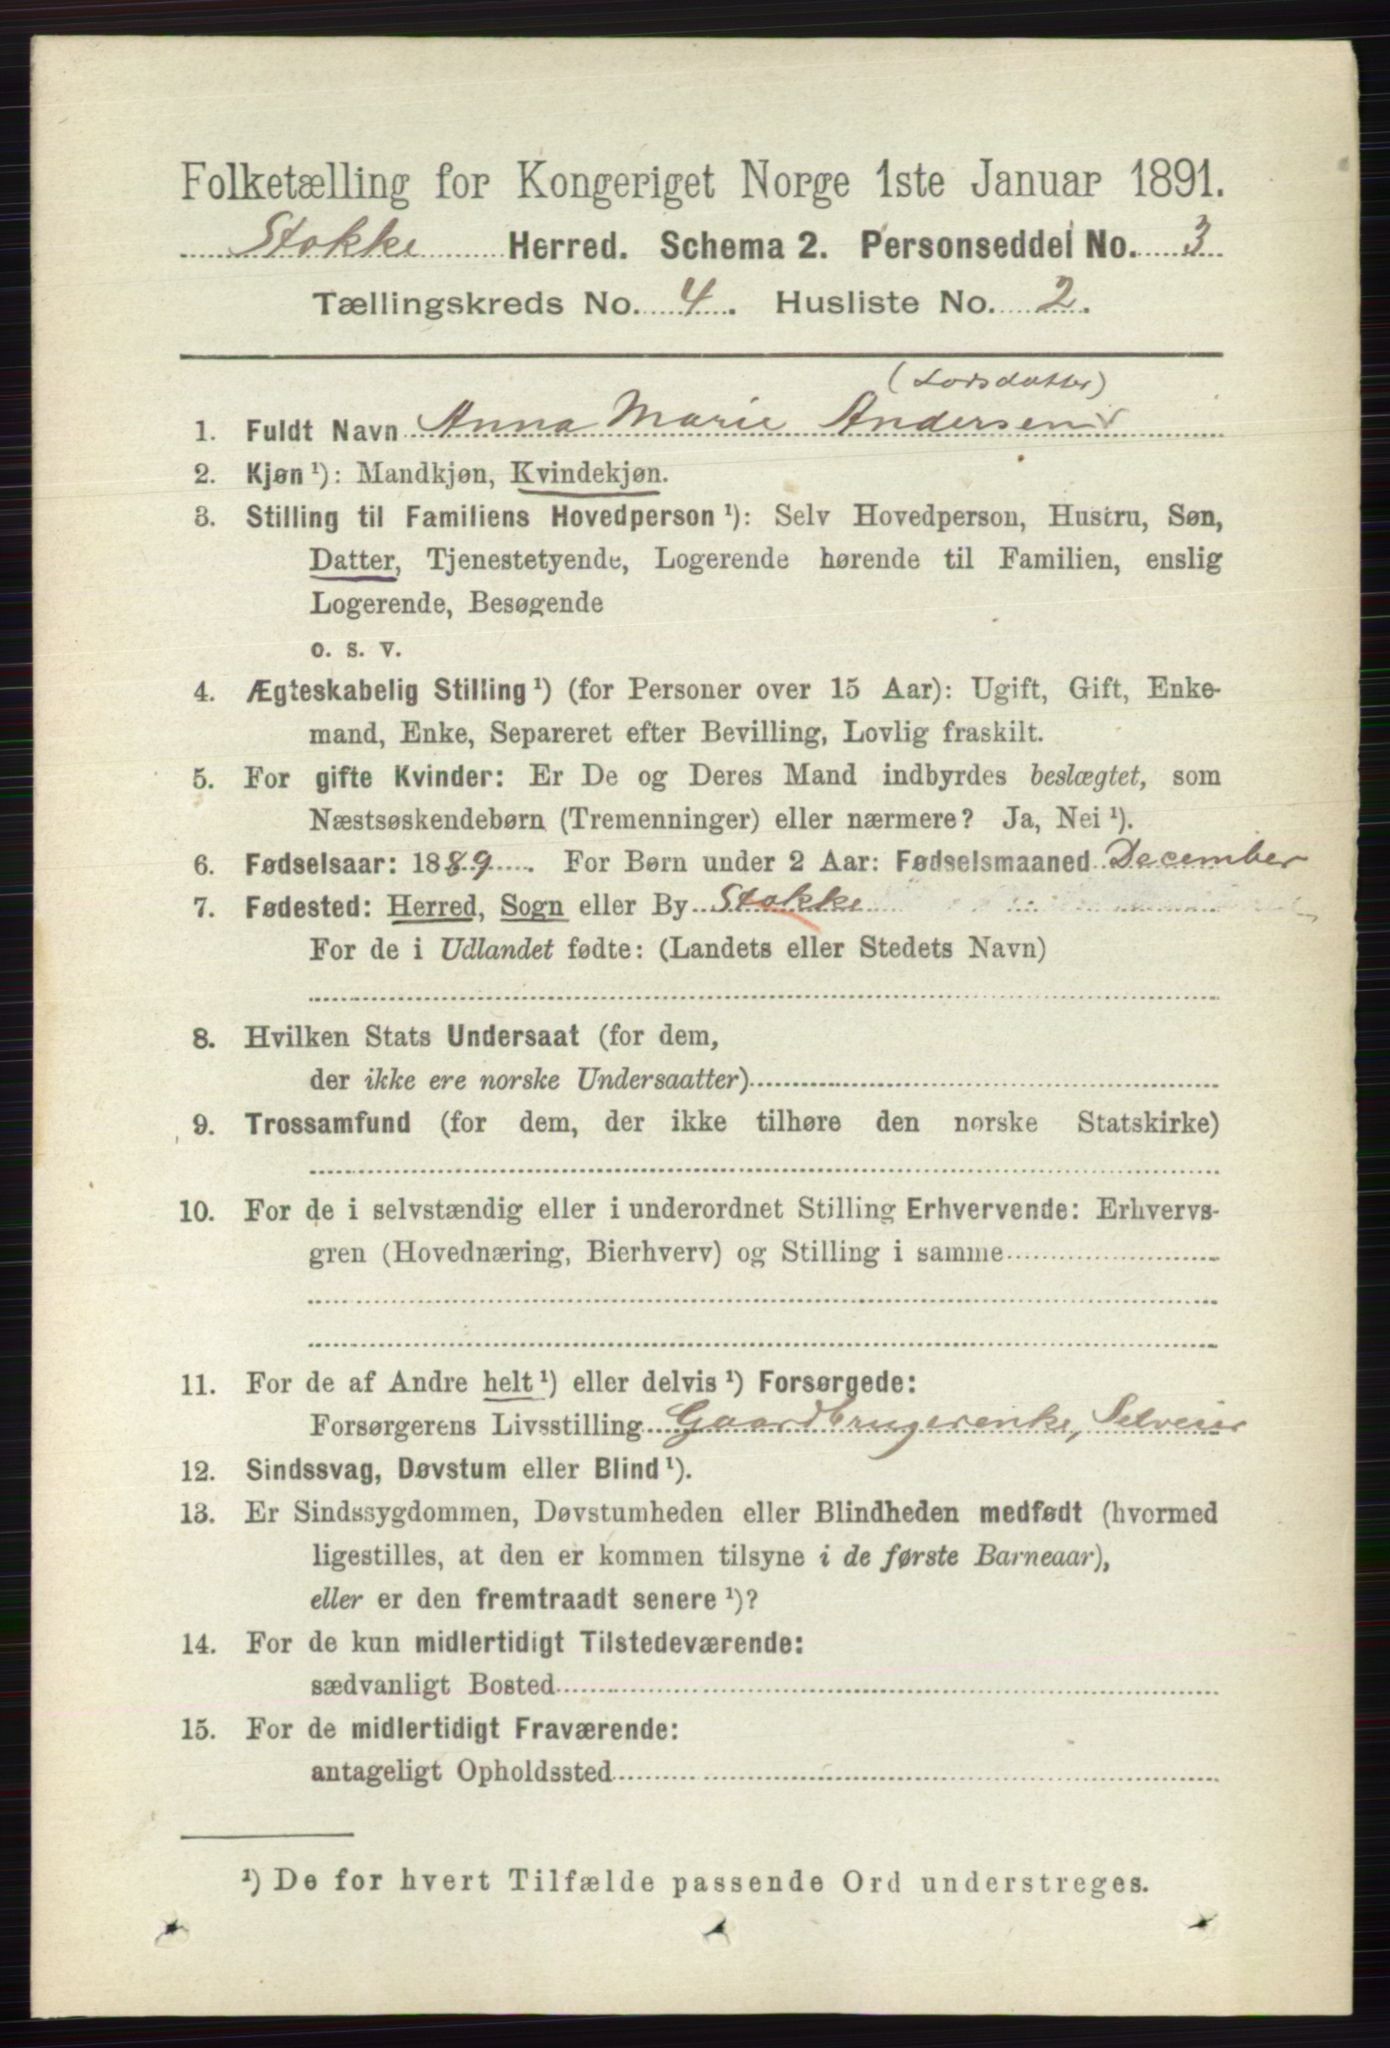 Folketælling for Kongeriget Norge 1ste Januar 1891.
Stokke Herred. Schema 2. Personseddel No. 3
Tællingskreds No. 4. Husliste No. 2.
(Larsdatter)
1. Fuldt Navn Anna Marie Andersen
2. Kjøn ¹): Mandkjøn, Kvindekjøn.
3. Stilling til Familiens Hovedperson ¹): Selv Hovedperson, Hustru, Søn,
Datter, Tjenestetyende, Logerende hørende til Familien, enslig
Logerende, Besøgende
o. s. v.
4. Ægteskabelig Stilling ¹) (for Personer over 15 Aar): Ugift, Gift, Enke-
mand, Enke, Separeret efter Bevilling, Lovlig fraskilt.
5. For gifte Kvinder: Er De og Deres Mand indbyrdes beslægtet, som
Næstsøskendebørn (Tremenninger) eller nærmere? Ja, Nei ¹).
6. Fødselsaar: 1889. For Børn under 2 Aar: Fødselsmaaned December
7. Fødested: Herred, Sogn eller By Stokke
For de i Udlandet fødte: (Landets eller Stedets Navn)
8. Hvilken Stats Undersaat (for dem,
der ikke ere norske Undersaatter)
9. Trossamfund (for dem, der ikke tilhøre den norske Statskirke)
10. For de i selvstændig eller i underordnet Stilling Erhvervende: Erhvervs-
gren (Hovednæring, Bierhverv) og Stilling i samme
11. For de af Andre helt ¹) eller delvis ¹) Forsørgede:
Forsørgerens Livsstilling Gaardbrugerenke, Selveier
12. Sindssvag, Døvstum eller Blind ¹).
13. Er Sindssygdommen, Døvstumheden eller Blindheden medfødt (hvormed
ligestilles, at den er kommen tilsyne i de første Barneaar),
eller er den fremtraadt senere ¹)?
14. For de kun midlertidigt Tilstedeværende:
sædvanligt Bosted
15. For de midlertidigt Fraværende:
antageligt Opholdssted
¹) De for hvert Tilfælde passende Ord understreges.